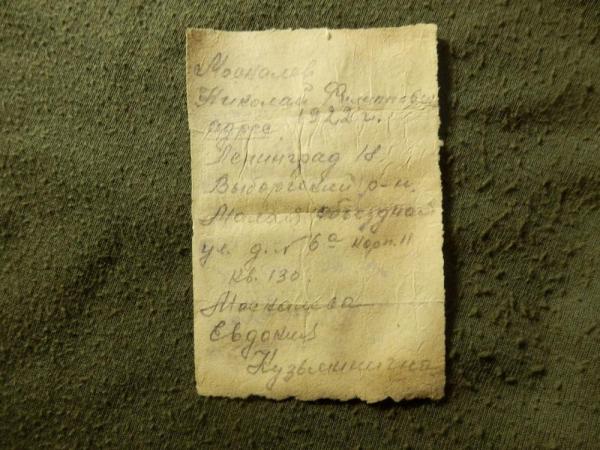 Москалев
Николай Филиппович
1922 г.
адрес.
Ленинград 18
Выборгский р-н.
Малая объездная
ул. д. 6а корп. 11
кв. 130.
Москалева
Евдокия
Кузьминична